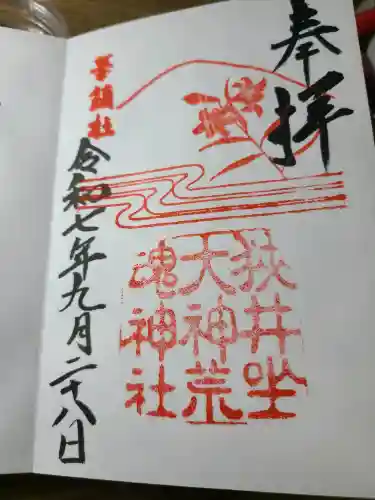 奉拝
華鎮社
狭井坐
大神荒
魂神社
令和七年九月二十八日